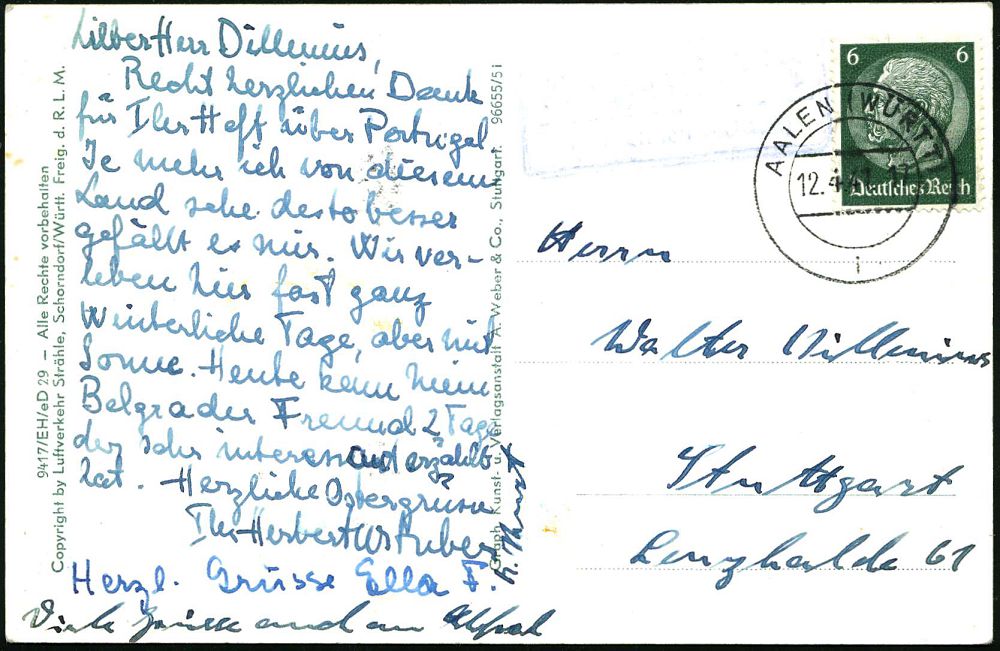 Lieber Herr Dillenius,
Recht herzlichen Dank
für Ihr Heft über Portugal
Je mehr ich von diesem
Land sehe desto besser
gefällt es mir. Wir ver-
leben hier fast ganz
Winterliche Tage, aber mit
Sonne. Heute kam mein
Belgrader Freund 2 Tage
der sehr interessant erzählt
hat. Herzliche Ostergrüsse
Ihr Herbert
Herzl. Grüsse Ella F.
Viele Grüsse auch an
9417/EH/eD 29 — Alle Rechte vorbehalten
Copyright by Luftverkehr Strähle, Schorndorf/Württ. Freig. d. R. L. M.
Graph. Kunst- u. Verlagsanstalt A. Weber & Co., Stuttgart. 96655/5i
6 6
Deutsches Reich
AALEN (WÜRTT)
12.4.41
i
Herrn
Walter Dillenius
Stuttgart
Lenzhalde 61